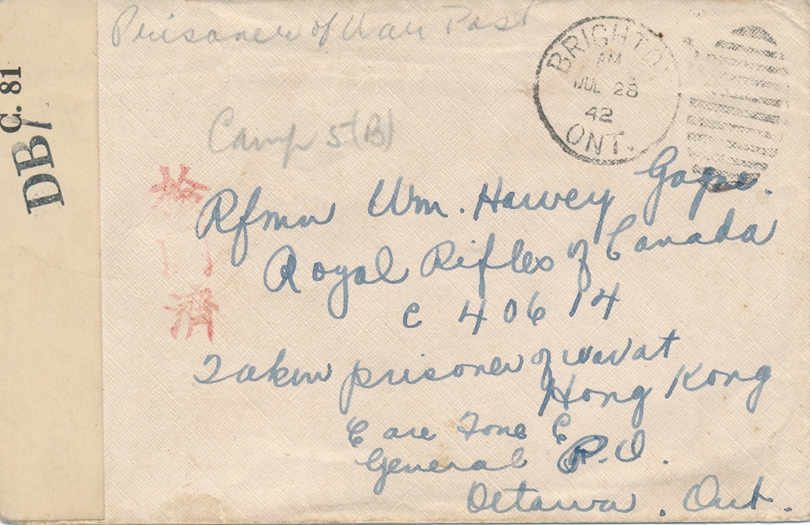 Prisoner of War Post
BRIGHTON
AM
JUL 28
42
ONT.
C. 81
DB/
Camp 5 (B)
檢
閲
濟
Rfmn Wm. Harvey
Royal Rifles of Canada
C 40614
Taken prisoner of war at
Hong Kong
General P.O.
Ottawa. Ont.